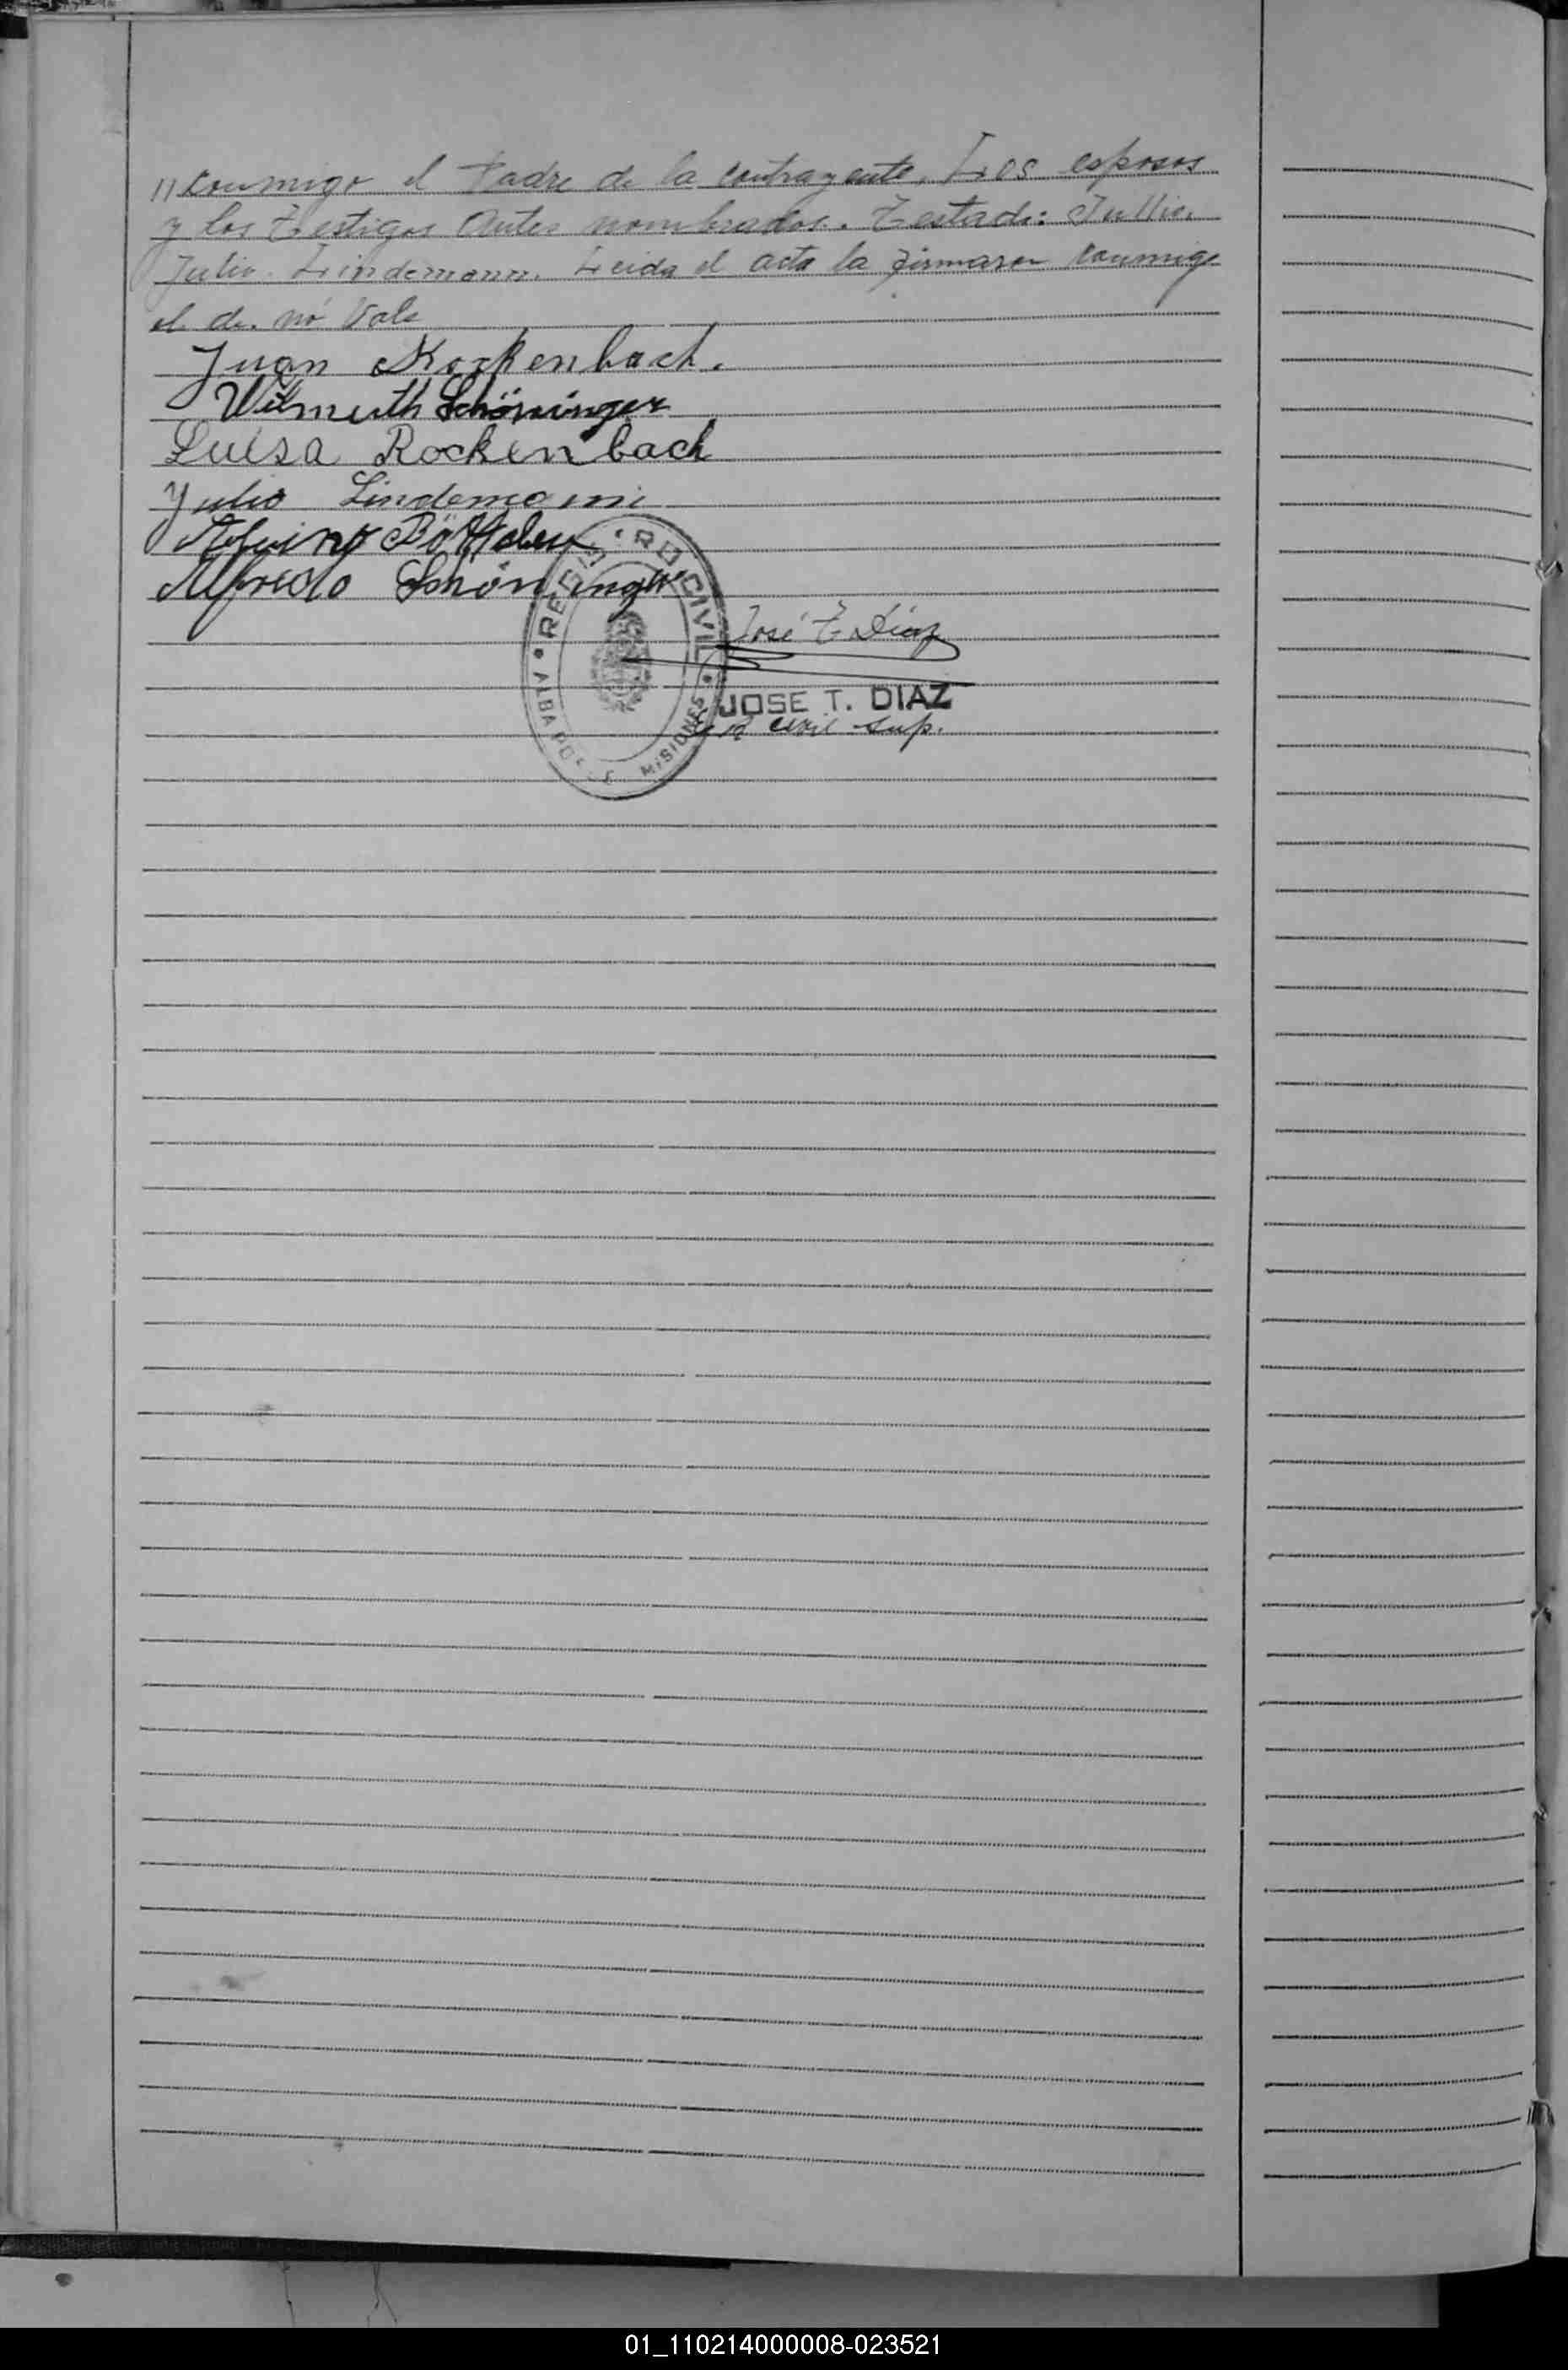 // Conmigo el Padre de la Contrayente, Los esposos
y los Testigos Antes nombrados. Testado: Jullio.
Julio. Lindemann. Leida el acta la firmaron conmigo
el de. no Vale
Juan Rockenbach.
Wilmuth Schöninger
Luisa Rockenbach
Julio Lindemann
Alfredo Schöninger
REGISTRO CIVIL
ALBA POSSE MISIONES
José T. Diaz
JOSE T. DIAZ
civil sup.
01_110214000008-023521